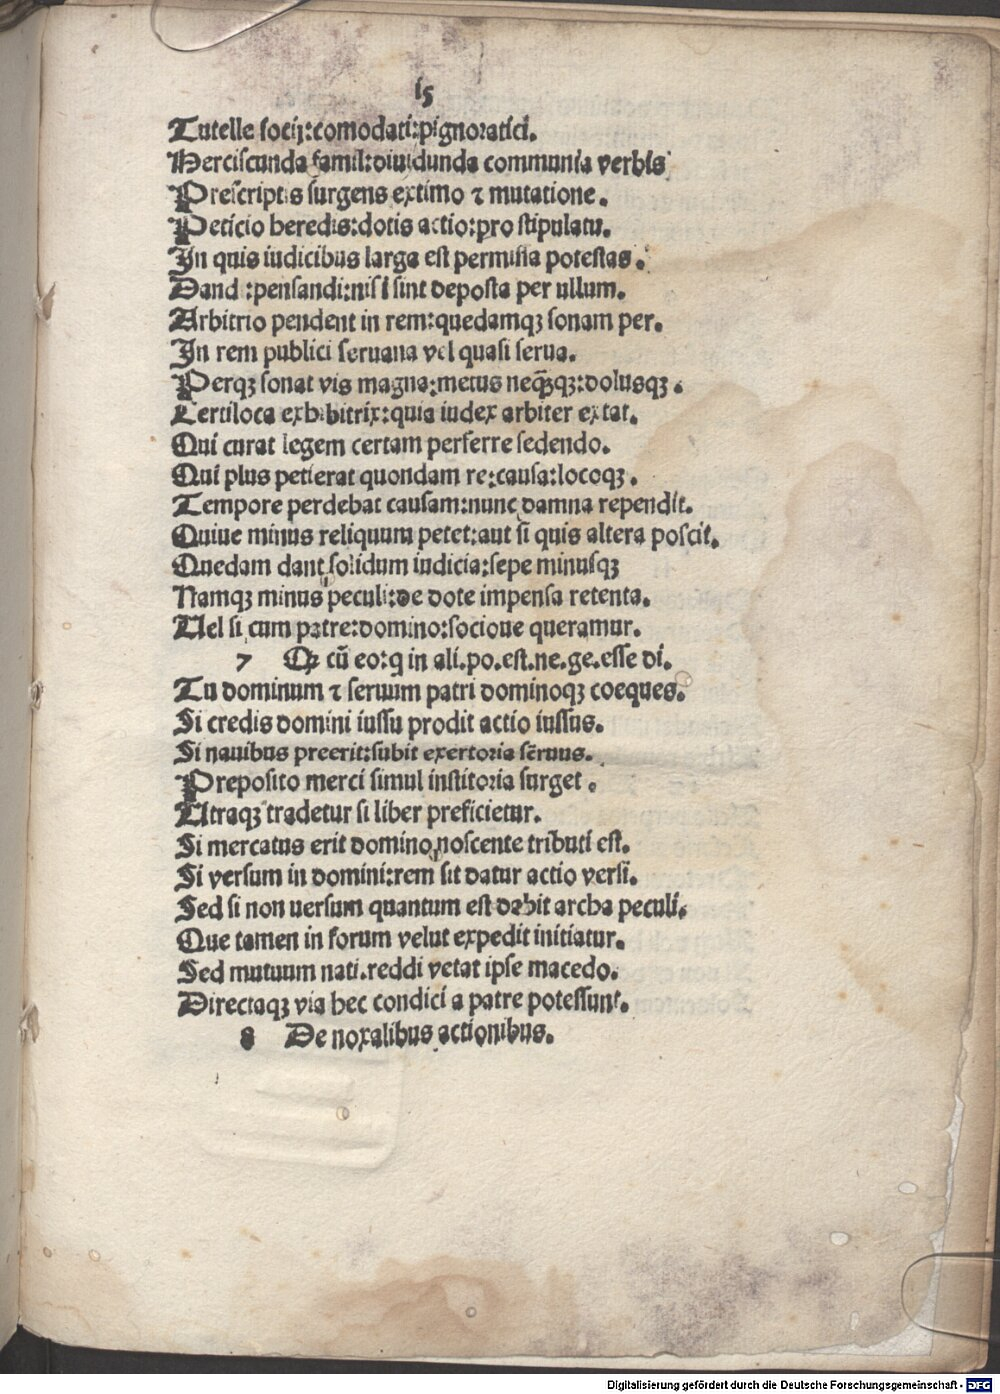 15
Tutelle socij:comodati:pignoratici.
Herciscunda famil:diuidunda communia verbis
Prescriptis surgens extimo ⁊ mutatione.
Peticio heredis:dotis actio:pro stipulatu.
In quis iudicibus large est permissa potestas.
Dand:pensandi:nisi sint deposta per ullum.
Arbitrio pendent in rem:quedamqꝫ sonam per.
In rem publici seruana vel quasi serua.
Perqꝫ sonat vis magna:metus neqꝫqꝫ:dolusqꝫ.
Certiloca exhibitrix:quia iudex arbiter extat.
Qui curat legem certam perferre sedendo.
Qui plus petierat quondam re:causa:locoqꝫ.
Tempore perdebat causam:nunc damna rependit.
Quiue minus reliquum petet:aut si quis altera poscit.
Quedam dant solidum iudicia:sepe minusqꝫ
Namqꝫ minus peculi:de dote impensa retenta.
Uel si cum patre:domino:socioue queramur.
7 Qꝫ cū eo:q in ali.po.est.ne.ge.esse di.
Tu dominum ⁊ seruum patri dominoqꝫ coeques.
Si credis domini iussu prodit actio iussus.
Si nauibus preerit:subit exertoria sēruus.
Preposito merci simul institoria surget.
Utraqꝫ tradetur si liber preficietur.
Si mercatus erit domino noscente tributi est.
Si versum in domini:rem sit datur actio versi.
Sed si non uersum quantum est dabit archa peculi.
Que tamen in forum velut expedit initiatur.
Sed mutuum nati.reddi vetat ipse macedo.
Directaqꝫ via hec condici a patre potessunt.
8 De noxalibus actionibus.
Digitalisierung gefördert durch die Deutsche Forschungsgemeinschaft - DFG